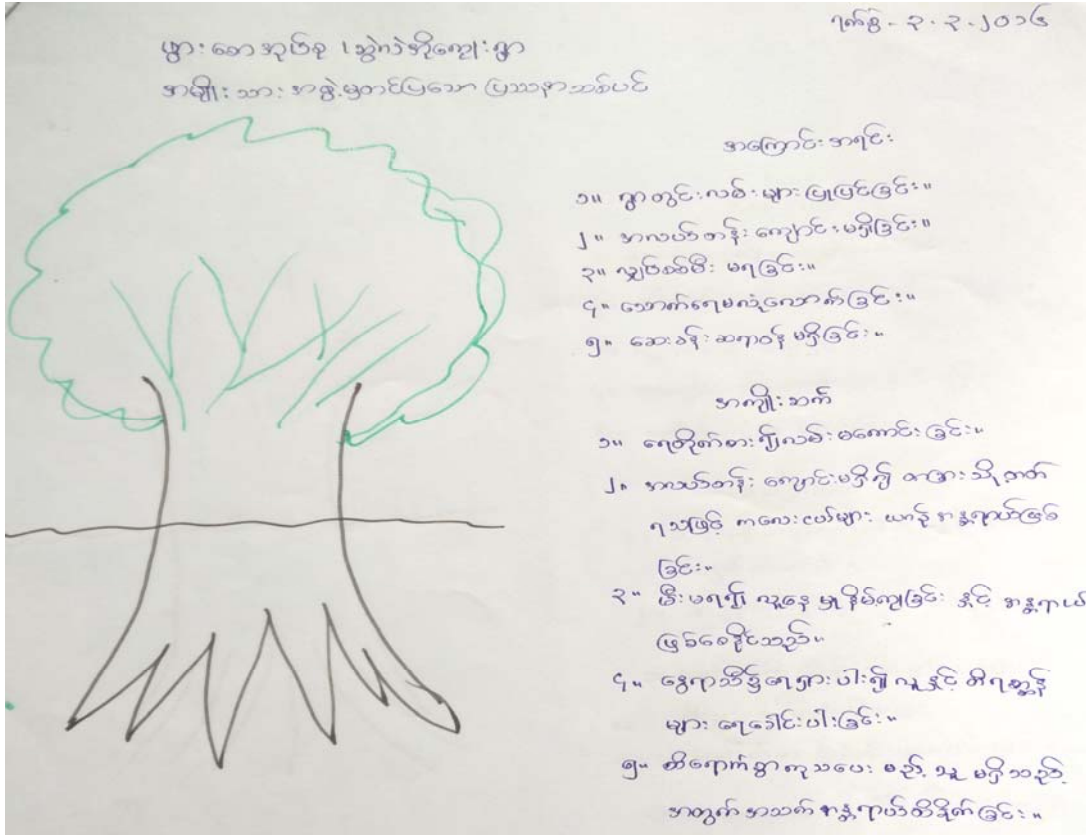 ရက်စွဲ - ၃ - ၃ - ၂၀၁၆
ဖွားစောအုပ်စု ၊ သွဲကဲအိုကျေးရွာ
အမျိုးသားအဖွဲ့မှတင်ပြသော ပြဿနာသစ်ပင်
အကြောင်းအရင်း
၁။ ရွာတွင်းလမ်းများ ပြုပြင်ခြင်း။
၂။ အလယ်တန်းကျောင်း မရှိခြင်း။
၃။ လျှပ်စစ်မီး မရခြင်း။
၄။ သောက်ရေမလုံလောက်ခြင်း။
၅။ ဆေးခန်းဆရာဝန် မရှိခြင်း။
အကျိုးဆက်
၁။ ရေတိုက်စား၍လမ်းမကောင်းခြင်း။
၂။ အလယ်တန်းကျောင်းမရှိ၍ တခြားသို့တတ်
ရသဖြင့် ကလေးငယ်များ ယာဉ်အန္တရာယ်ဖြစ်
ခြင်း။
၃။ မီးမရ၍ လူနေမှုနိမ့်ကျခြင်း နှင့် အန္တရာယ်
ဖြစ်စေနိုင်သည်။
၄။ နွေရာသီ၌ရေရှားပါး၍ လူနှင့် တိရစ္ဆာန်
များ ရေခေါင်းပါးခြင်း။
၅။ ထိရောက်စွာကုသပေး မည့်သူ မရှိသည့်
အတွက် အသက်အန္တရာယ်ထိခိုက်ခြင်း။